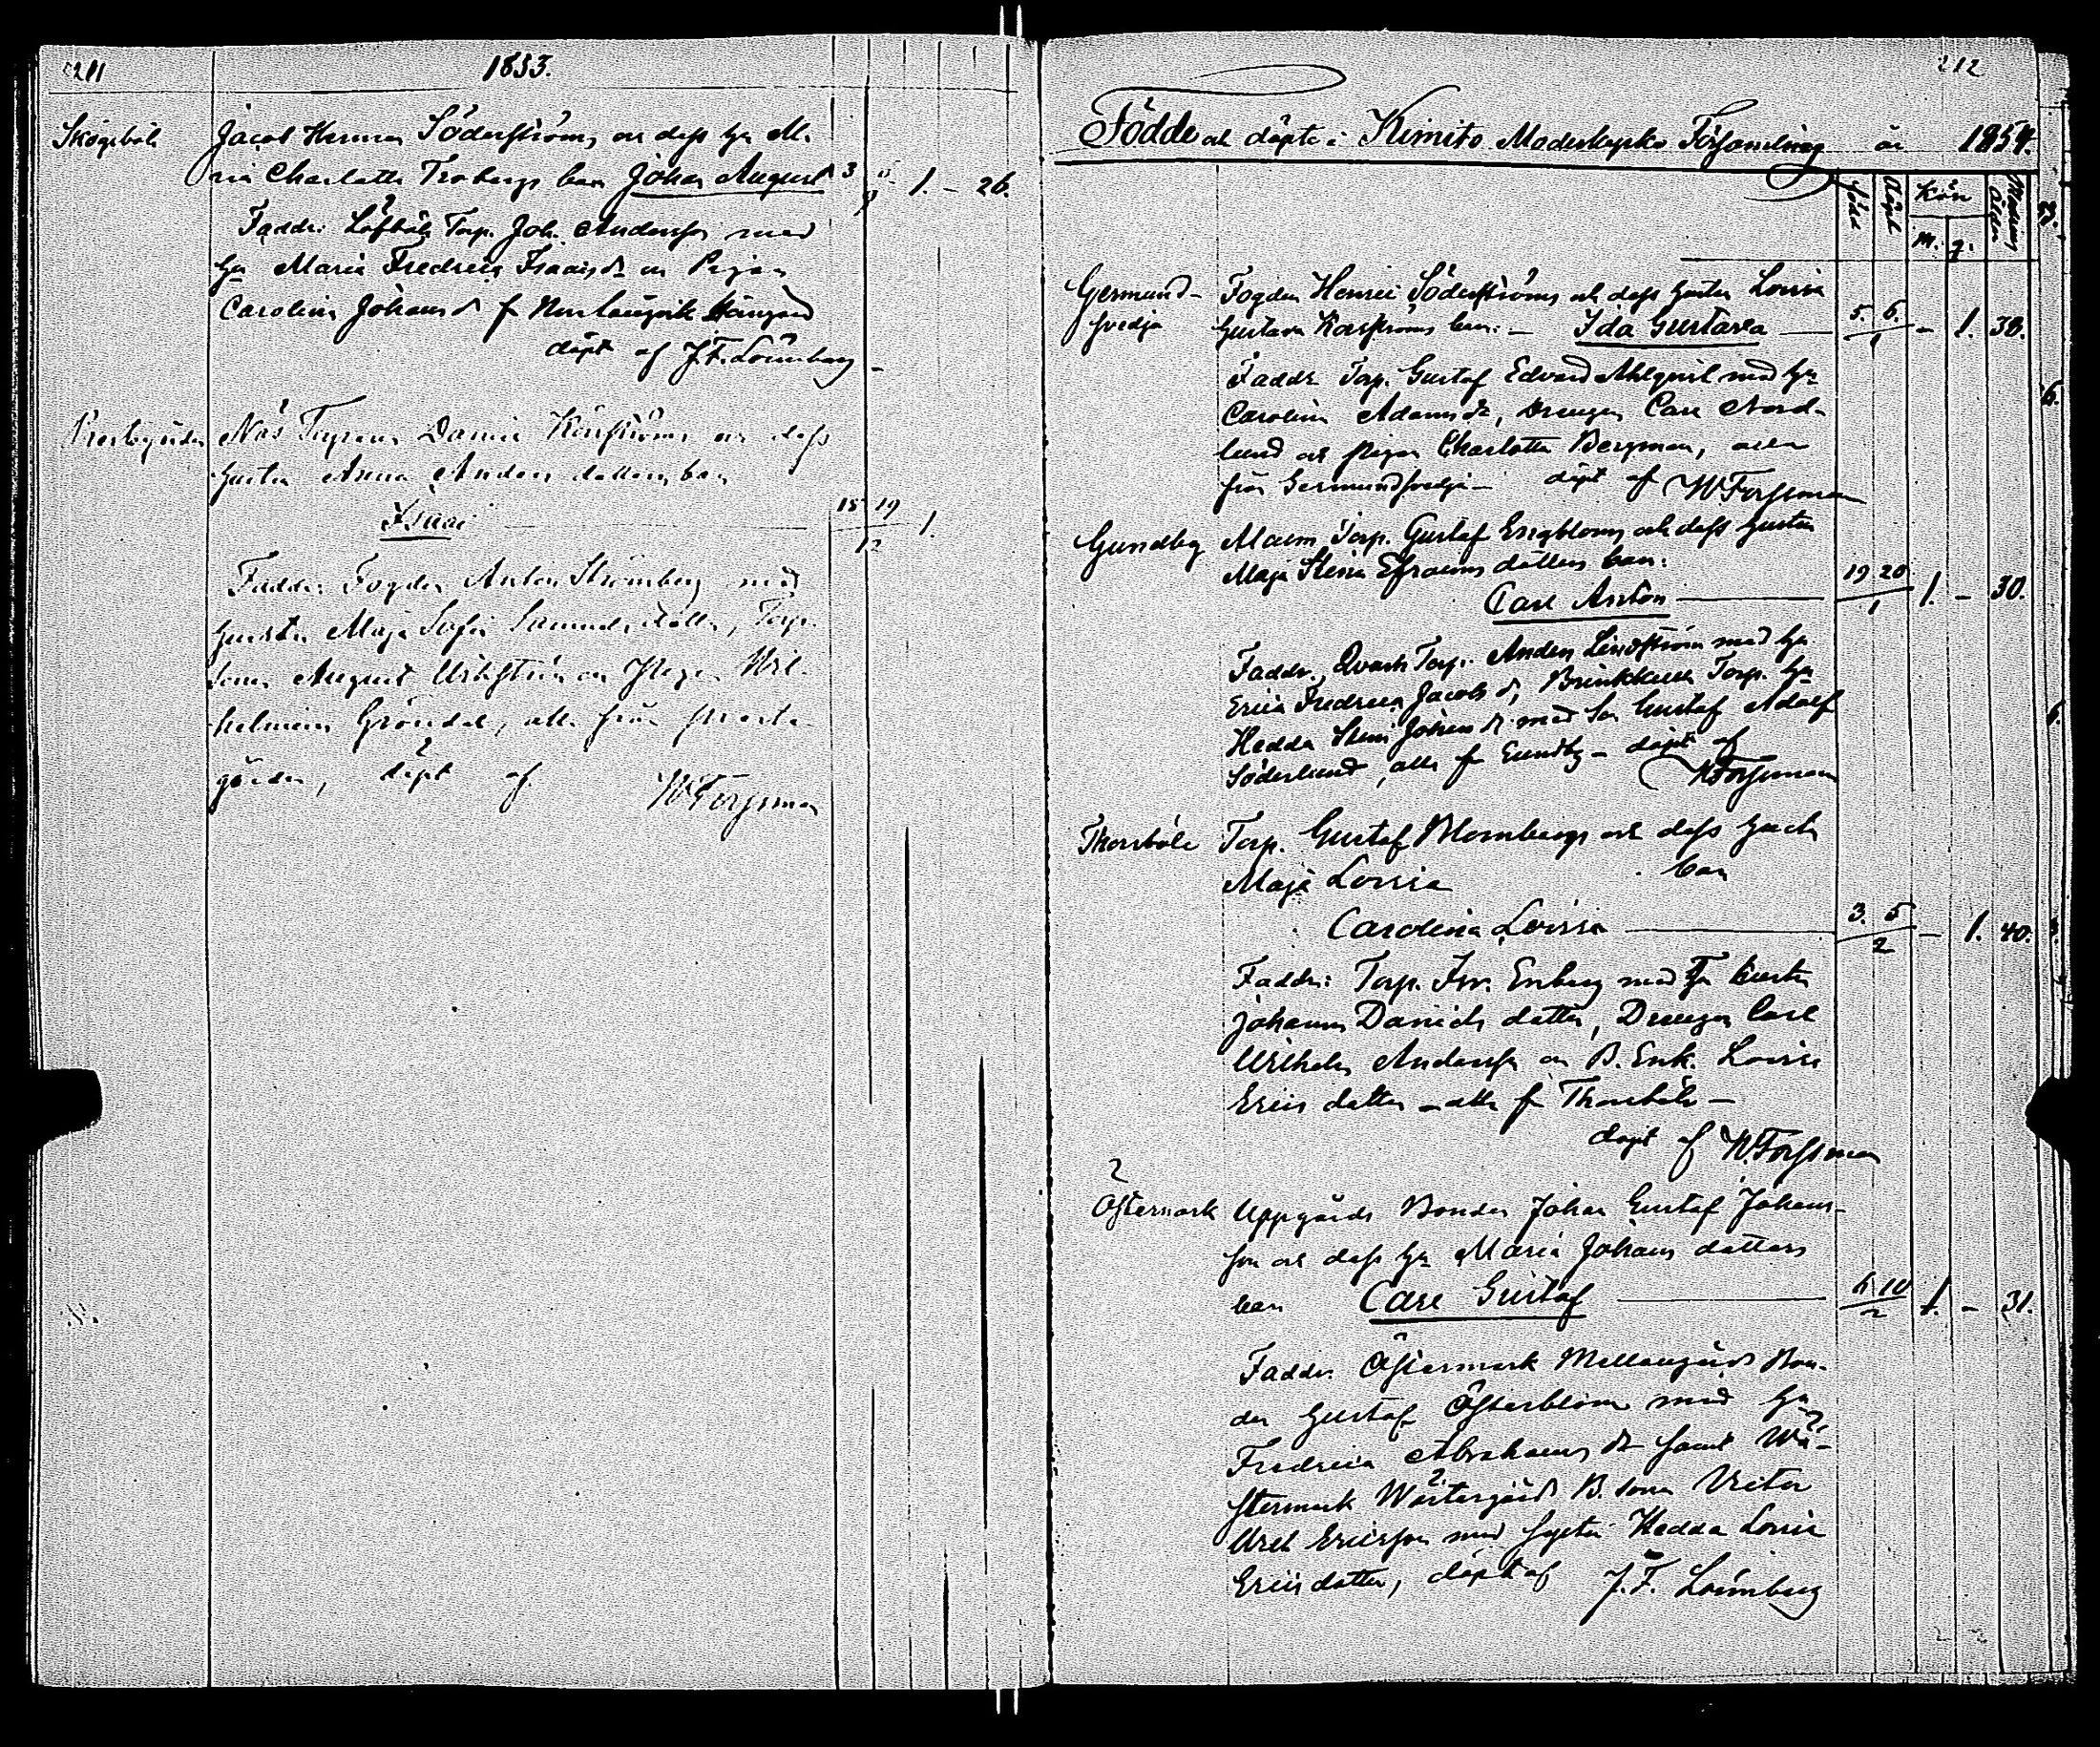 211 1853.
Skogsböle Jacob Herman Söderströms och dess hu Ma-
ria Charlotta Frobergs barn Johan August 3 1. - 26.
Faddr: Löfböle Torp. Joh. Andersson med
hu Maria Fredrica Isaacs dr och Pigan
Carolina Johans dr fr
döpt af J. F. Lönnberg
Prestgården Nös Torparen Daniel Körströms och dess
hustru Anna Anders dotters barn
Isaac 15 19 1.
12
Faddr: Fogden Anton Strömberg med
hustru Maja Sofia Samuels dotter, Torp.
sonen August Wikström och Pigan Wil-
helmina Gröndal, alla från Prest-
gården, döpt af
W Forssman
212
Födde och döpte i Kimito Moderkyrko Församling år 1854.
Född Döpt Kön Modrens ålder
M. Q.
Germund- Fogden Henric Söderströms och dess hustru Lovisa
svedja Gustava Korströms barn: - Ida Gustava 5. 6. - 1. 38.
1
Faddr Torp. Gustaf Edvard Ahlqvist med hu
Carolina Adams dr, Drengen Carl Nord-
lund och pigan Charlotta Bergman, alla
från Germundsvedja - döpt af W Forssman
Gundby Malm Torp. Gustaf Engbloms och dess hustru
Maja Stina Efraims dotters barn:
Carl Anton 19 20 1. - 30.
1
Faddr. Qvarn Torp. Anders Lindström med hu
Erica Fredrica Jacobs dr, Brinkbacka Torp. hu
Hedda Stina Johans dr med son Gustaf Adolf
Söderlund, alla fr Gundby - döpt af
W Forssman
Thorsböle Torp. Gustaf Blombergs och dess hustru
Maja Lovisa barn
Carolina Lovisa 3. 5 - 1. 40.
2
Faddr: Torp. Isr. Enberg med hustru
Johanna Daniels dotter, Drengen Carl
Wilhelm Andersson och B. Enk. Lovisa
Erics dotter - alla fr Thorsböle -
döpt af W. Forssman
Östermark Uppgårds Bonden Johan Gustaf Johans-
son och dess hu Maria Johans dotters
barn Carl Gustaf 6 10 1. - 31.
2
Faddr. Östermark Mellangårds Bon-
den Gustaf Österblom med hu
Fredrica Abrahams dr samt Wä-
stermark Wästergård B. sonen Victor
Ericsson med syster Hedda Lovisa
Ericsdotter, döpt af J. F. Lönnberg